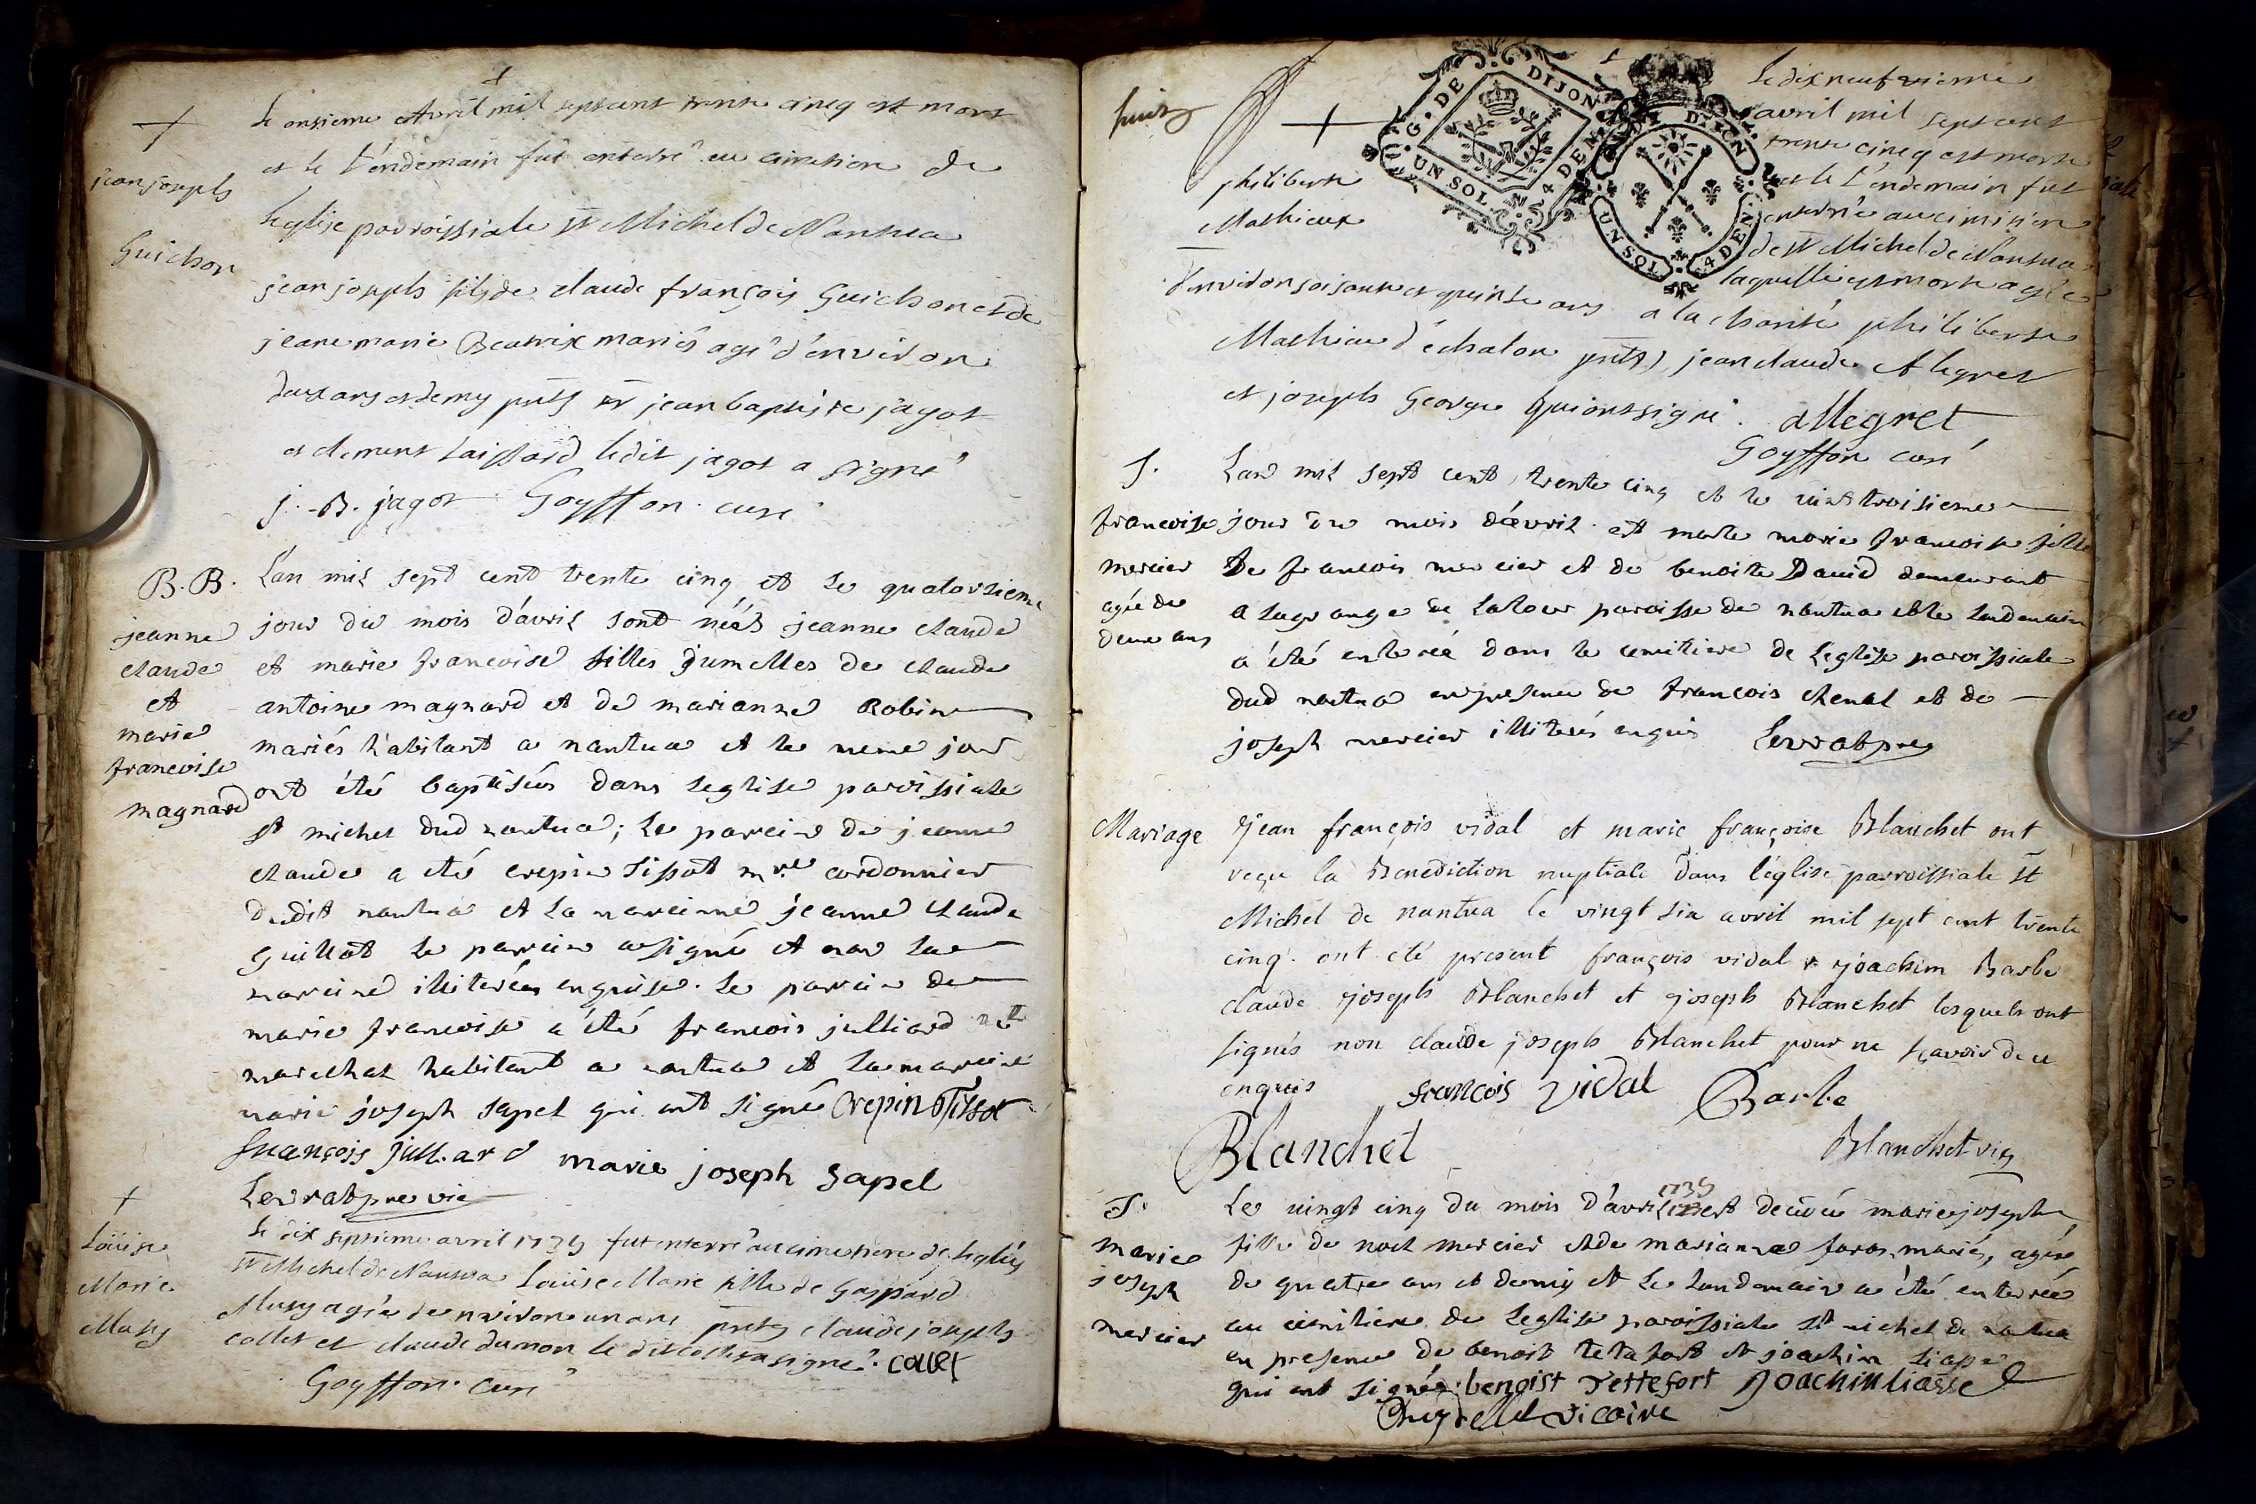 jean joseph
Guichon
le onzieme Avril mil sept cent trente cinq est mort
et le l'endemain fut enterré au cimetiere de
l'eglise parroissiale St Michel de Nantua
jean joseph fils de claude françois Guichon et de
jeane marie Beatrix mariés agé d'environ
deux ans et demy pnts Sr jean baptiste jagot
et clement ledit jagot a signé
j. B. jagot Goyffon curé
B. B.
jeanne
claude
et
marie
francoise
magnard
L'an mil sept cent trente cinq et le quatorsieme
jour du mois d'avril sont néés jeanne claude
et marie francoise filles jumelles de claude
antoine magnard et de marianne Robin
mariés habitant a nantua et le meme jour
ont été baptisées dans leglise paroissiale
st michel dud nantua; le parein de jeanne
claude a été crepin tissot mre cordonnier
dudit nantua et la mareine jeanne claude
guillot le parein a signé et non la
mareine illiterée enquise. le parein de
marie francoise a été francois julliard
marechal habitant a nantua et la mareine
marie joseph sapel qui ont signé Crepin Tissot
françois Julliard marie joseph sapel
Levrat pre vic
Loüise
Marie
Musy
le dix septieme avril 1735 fut enterré au cimetiere de l'eglise
St Michel de Nantua Loüise Marie fille de Gaspard
Musy agée d'environ un an pnts claude joseph
collet et claude dumon le dit collet a signé. collet
Goyffon curé
huit
G. DE DIJON
UN SOL 4 DEN
DIJON
UN SOL 4 DEN
philiberte
Mathieux
le dix neufvieme
avril mil sept cent
trente cinq est morte
et le l'endemain fut
enterrée au cimetiere
de St Michel de Nantua
laquelle est morte agée
d'environ soisante et quinze ans a la charité philiberte
Mathieu d'échalon pnts jean claude Alegret
et joseph George qui ont signé. allegret
Goyffon curé
S.
francoise
mercier
agée de
deux ans
L'an mil sept cent trente cinq et le vint troisieme
jour du mois d'avril est morte marie francoise fille
de francois mercier et de benoite David demeurant
a la grange de la tour paroisse de nantua et le landemain
a été enterée dans le cemitiere de l'eglise paroissiale
dud nantua en presence de francois chenal et de
joseph mercier illiterés enquis Levrat pre
Mariage
Jean françois vidal et marie françoise Blanchet ont
reçu la Benediction nuptiale dans l'église parroissiale St
Michel de nantua le vingt six avril mil sept cent trente
cinq. ont été present françois vidal & joachim Barbe
claude joseph Blanchet et joseph Blanchet lesquels ont
signés non claude joseph Blanchet pour ne sçavoir de ce
enquis françois vidal Barbe
Blanchet
Blanchet vic
S.
marie
joseph
mercier
1735
Le vingt cinq du mois d'avril est decedée marie joseph
fille de noel mercier et de marianne mariés, agée
de quatre ans et demy et le landemain a été enterée
au cimitiere de l'eglise paroissiale st michel de nantua
en presence de benoit tetafort et joachin liasse
qui ont signés. benoist Tettefort Joachin liasse
vicaire